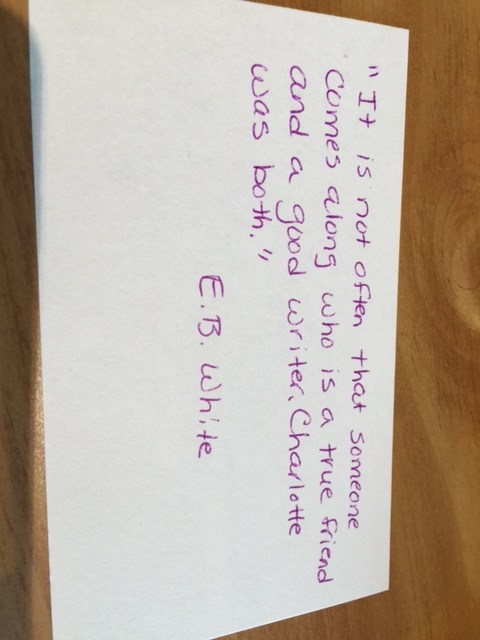 "It is not often that someone
comes along who is a true friend
and a good writer. Charlotte
was both."
E.B. White